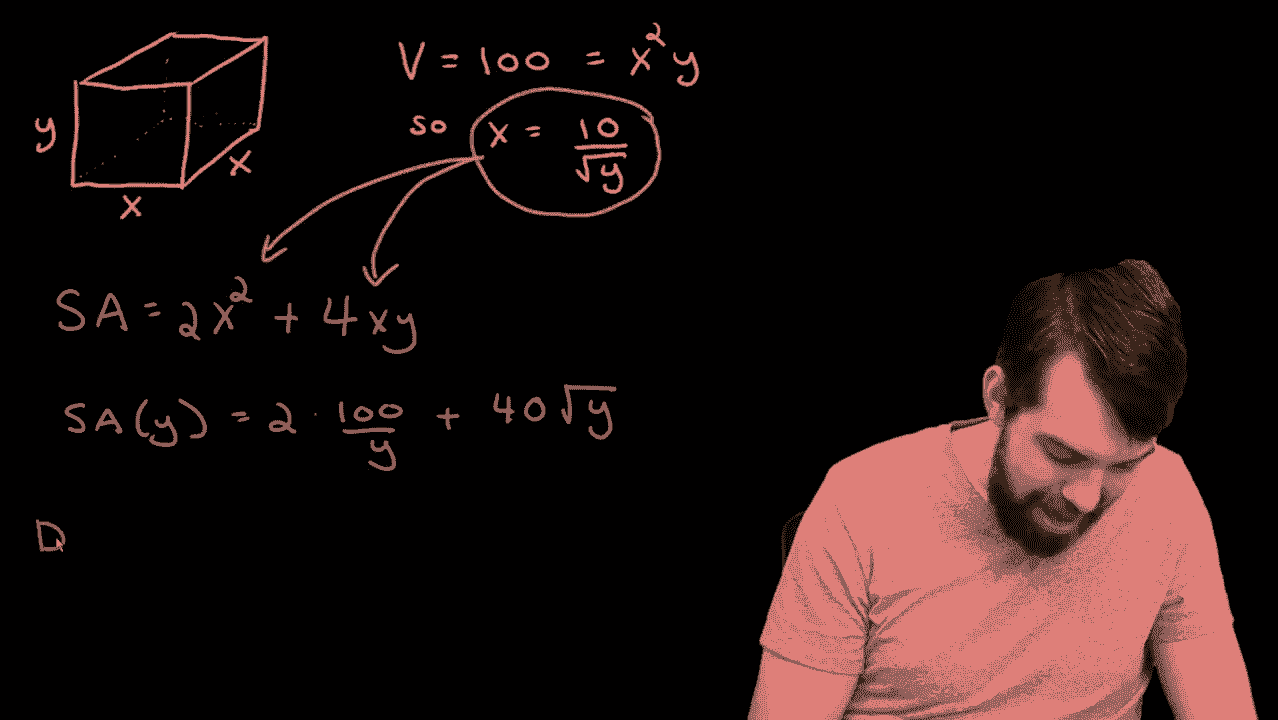 V = 100 = x²y
so x = 10/√y
y
x
x
SA = 2x² + 4xy
SA(y) = 2 · 100/y + 40√y
D